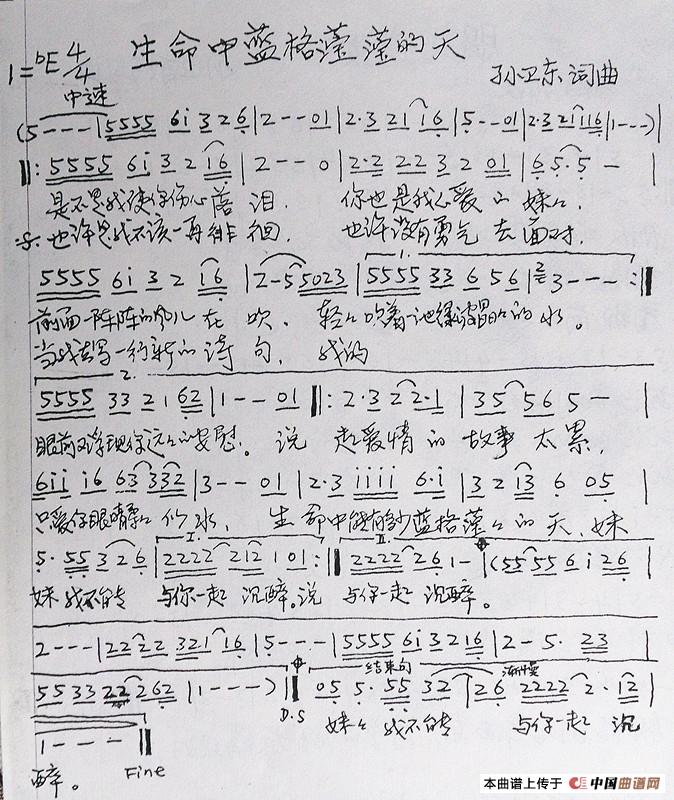 生命中蓝格莹莹的天
1=bE 4/4
孙卫东 词曲
中速
(5 - - - | 5555 6i 3 2 6 | 2 - - 01 | 2·3 21 16 | 5 - - 01 | 2·3 21116 | 1 - - - )|
‖: 5555 6i 3 2 16 | 2 - - 0 | 2·2 22 3 2 01 | 6 5· 5 - |
是不是我使你伤心落泪. 你也是我心爱的妹妹.
也许是我不该一再徘徊. 也许没有勇气去面对.
1.
5555 6i 3 2 16 | 2 - 5 5023 | 5555 33 6 56 | 3 - - - :‖
前面一阵阵的风儿在吹. 轻轻吹着一池绿波的水。
当我写一行新的诗句. 我的
2.
5555 33 2 1 62 | 1 - - 01 ‖: 2·3 2 2·1 | 35 56 5 - |
眼前又浮现你远的安慰。说起爱情的故事太累.
6ii i6 63 332 | 3 - - 01 | 2·3 iiii 6·i | 3 2 13 6 05 |
只爱你眼睛似水. 生命中能有多少蓝格莹莹的天.妹
I. II.
5· 55 3 2 6 | 2222 212 1 01 :‖ 2222 26 1 - | (55 55 6 i 26 |
妹我不能 与你一起沉醉。说 与你一起沉醉。
2 - - - | 22 22 321 16 | 5 - - - | 5555 6i 3216 | 2 - 5· 23 |
结束句 渐慢
55 33 22 262 | 1 - - - ) ‖ 05 5· 55 32 | 26 2222 2· 12 |
D.S 妹妹我不能 与你一起沉
1 - - - ‖
醉。 Fine
本曲谱上传于 中国曲谱网